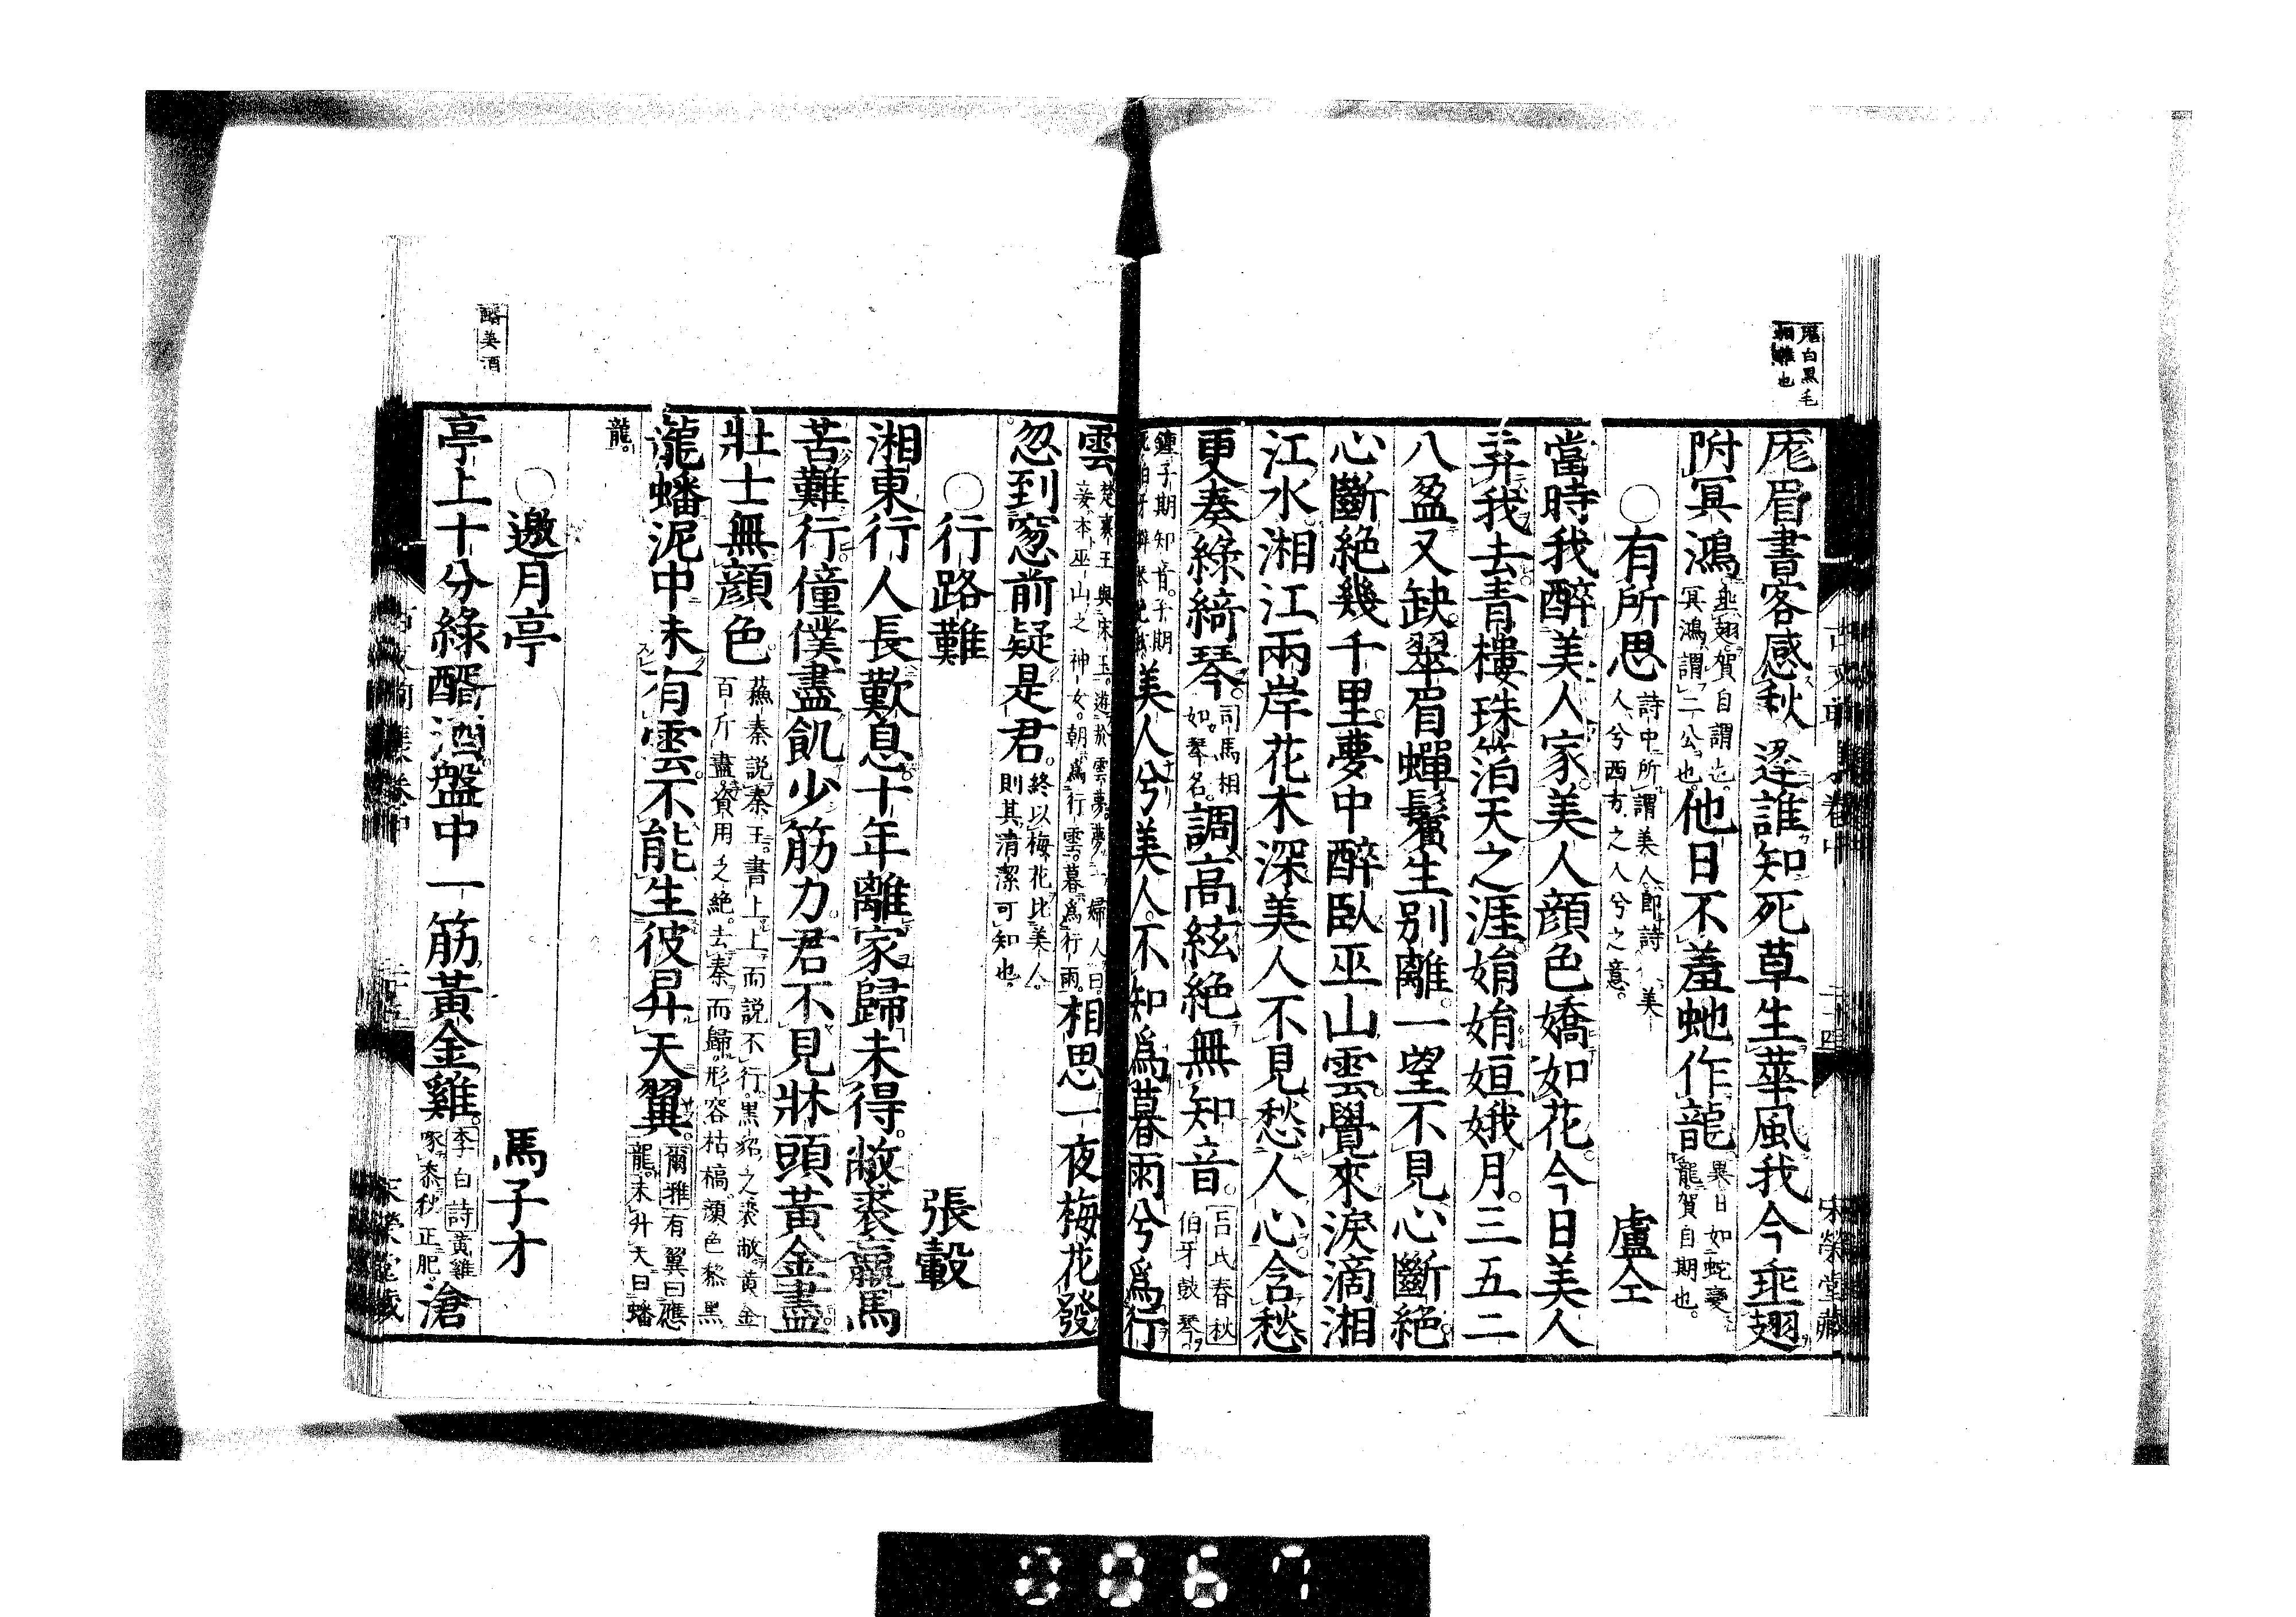 厖白黒毛
相雜也
厖眉書客感秋蓬誰知死草生華風我今垂翅
附冥鴻垂翅賀自謂也。冥鴻謂二公也。他日不羞虵作龍異日如蛇變龍。賀自期也。
○有所思詩中所謂美人即詩美人兮西方之人兮之意。 盧仝
當時我醉美人家。美人顔色嬌如花。今日美人
弃我去青樓珠箔天之涯娟娟姮娥月。三五二
八盈又缺。翠眉蟬鬢生別離。一望不見心斷絶。
心斷絶幾千里。夢中醉臥巫山雲。覺來淚滴湘
江水。湘江兩岸花木深美人不見愁人心。含愁
更奏綠綺琴。司馬相如。琴名。調高絃絶無知音。呂氏春秋伯牙鼓琴。
鍾子期知音。子期美人兮美人。不知爲暮雨兮爲行
雲楚襄王與宋玉遊於雲夢。夢一婦人曰。妾本巫山之神女。朝爲行雲。暮爲行雨。相思一夜梅花發
忽到窓前疑是君。終以梅花比美人。則其清潔可知也。
○行路難 張轂
湘東行人長歎息。十年離家歸未得。敝裘羸馬
苦難行。僮僕盡飢少筋力君不見牀頭黃金盡
壯士無顔色。蘓秦説秦王。書上上而説不行。黒貂之裘敝。黃金百斤盡。資用乏絶。去秦而歸。形容枯槁。顔色黎黒
龍蟠泥中未有雲。不能生彼昇天翼。爾雅有翼曰應龍。未升天曰蟠
龍。
○邀月亭 馬子才
醑美酒
亭上十分綠醑酒。盤中一筯黃金雞。李白詩黃雞啄黍秋正肥。滄
古文前集卷中 二十四 宋榮堂藏
0067